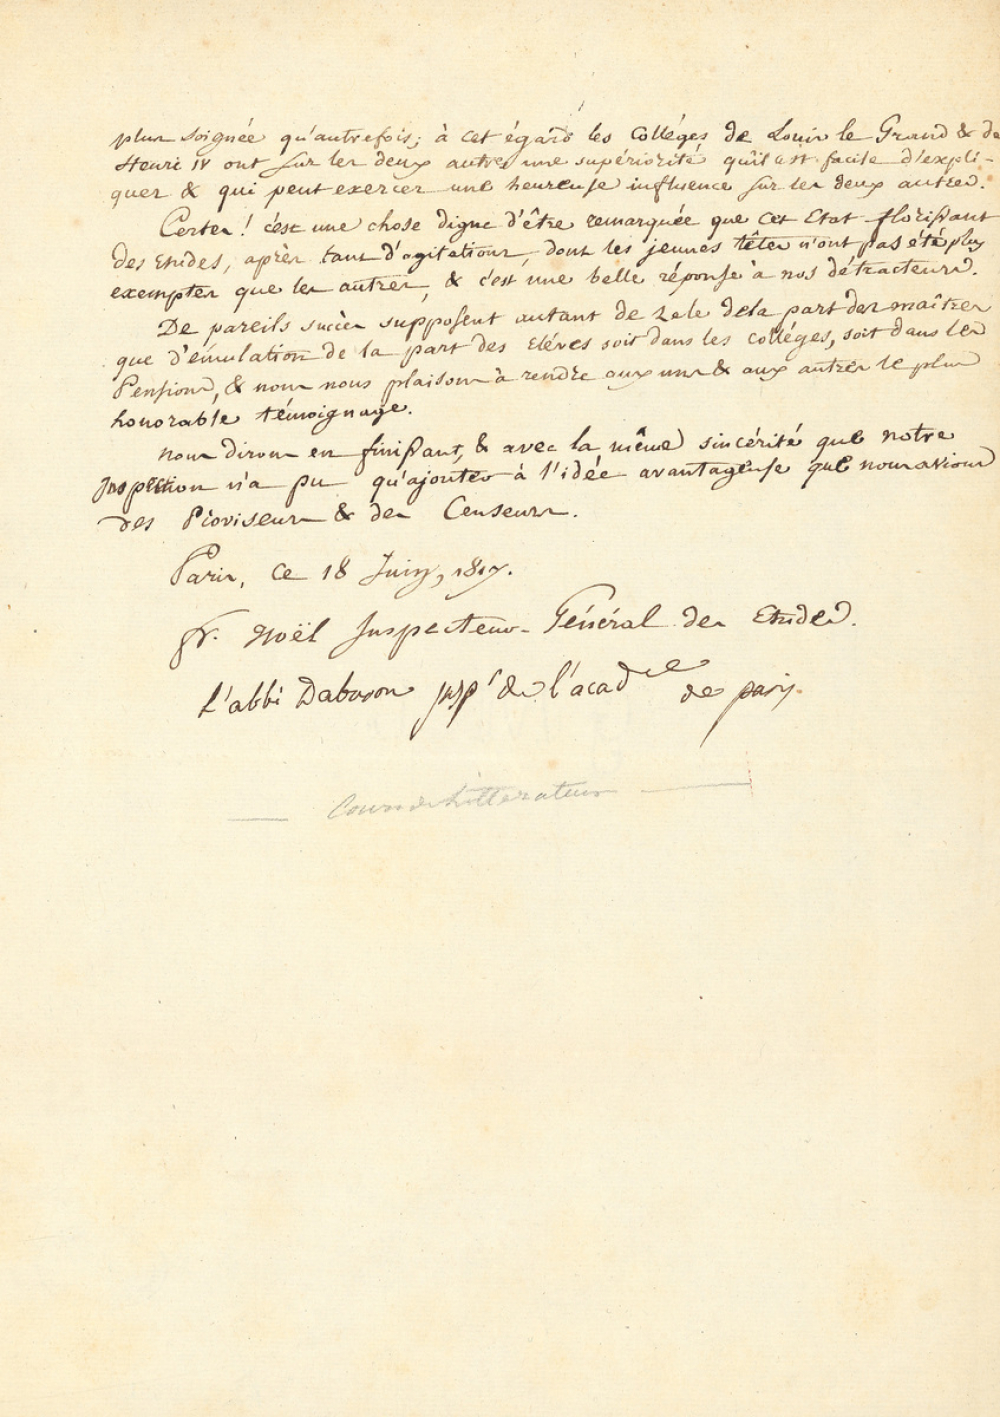 plus soignée qu'autrefois; à cet égard les Colléges de Louis le Grand & de
Henri IV ont sur les deux autres une supériorité qu'il est facile d'expli-
quer & qui peut exercer une heureuse influence sur les deux autres.
Certes! c'est une chose digne d'être remarquée que cet Etat florissant
des Etudes, après tant d'agitations, dont les jeunes têtes n'ont pas été plus
exemptes que les autres, & c'est une belle réponse à nos détracteurs.
De pareils succès supposent autant de zele de la part des maîtres
que d'émulation de la part des Eléves soit dans les colléges, soit dans les
Pensions, & nous nous plaisons à rendre aux uns & aux autres le plus
honorable témoignage.
nous dirons en finissant, & avec la même sincérité que notre
Inspection n'a pu qu'ajouter à l'idée avantageuse que nous avions
des Proviseurs & des Censeurs.
Paris, ce 18 Juin, 1817.
fr. Noël Inspecteur Général des Etudes.
L'abbé Daburon insp.r de l'acad.ie de paris.
Cours de Littérature